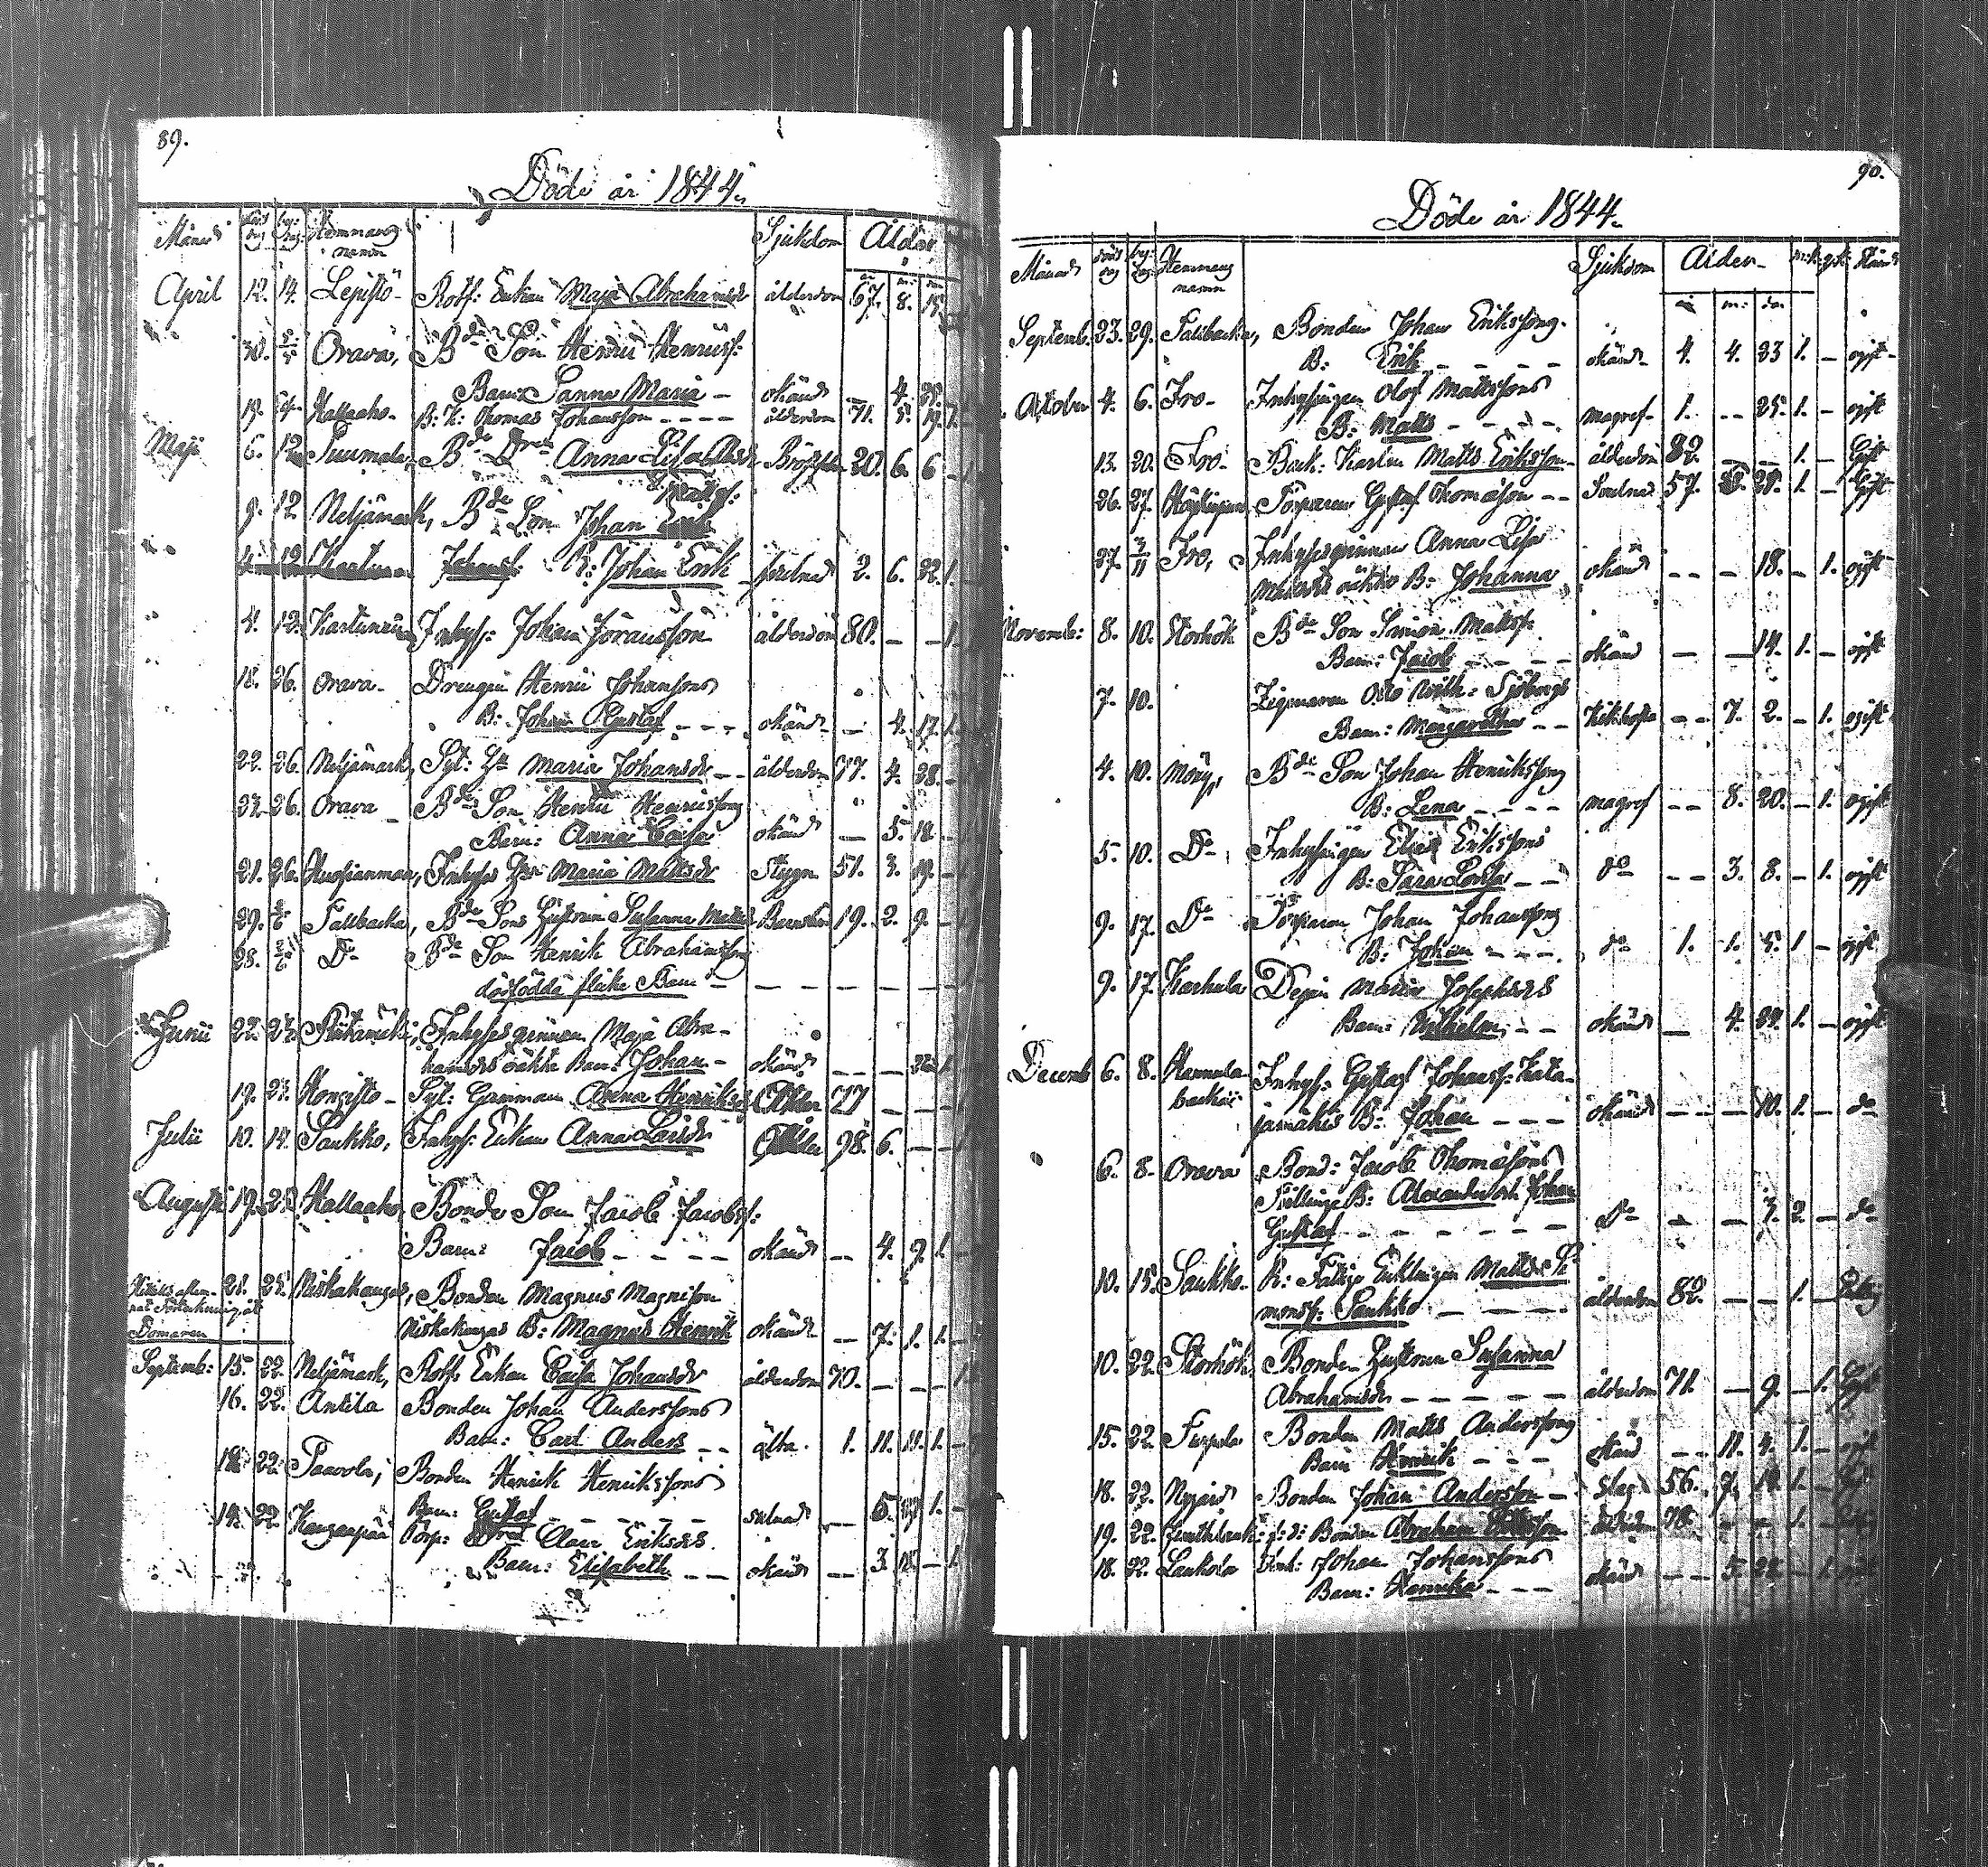 89.
Döde år 1844.
Månad Hemmans namn Sjukdom Ålder
April 12. 14. Lepistö - Rotf: Enkan Maja Abrahamsdr ålderdom 67. 8. 15.
30. Orava, Bde Son Henric Henricss:
Barn: Sanna Maria - okänd - 4.
19. Kallaaho. B: K: Thomas Johansson - - - - ålderdom 71. 5. 19. 1.
Maji 6. 12. Tuumala, Bde Anna Lisa 20. 6. 6 -
9. 12. Neljämark, Bde Son Johan Erik Mattss:
4. 12. Johanss: B: Johan Erik 2. 6. 22. 1.
4. 12. Kastunen Inhyss: Johan Göransson ålderdom 80. - - 1.
18. 26. Orava - Drengen Henric Johansons
B: Johan Gustaf - - - okänd - 4. 17. 1.
22. 26. Neljämark, Syt: Maria Johansdr - - ålderdom 77. 4. 28. -
24. 26. Orava - Bde Son Henric Henricssons
Barn: Anna Caisa okänd - 5. 12 -
21. 26. Inhyses Maria Mattsdr Stygn 51. 3. 19. -
29. Tallbacka, Bde Sons Hustrun Susanna 19. 2. 9. -
28. Do Bde Son Henrik Abrahamssons
dödfödda flicke Barn - - - - -
Junii 22. 24. Inhysesqvinnan Maja Abra-
hamsdrs oäkta Barn: Johan - okänd - - 1.
19. 24. Kongisto - Syt: Anna Henriksdr 77 - - -
Julii 10. 14. Saukko, Inhyss: Enkan Anna Larsdr 98. 6. - -
Augusti 19. 25. Kallaaho Bonde Son Jacob Jacobss:
Barn: Jacob - - - - okänd - 4. 9. 1. -
21. 25. Niskakangas, Bonden Magnus Magnison
Niskakangas B: Magnus Henrik okänd - 7. 1. 1. -
Domaren
Septemb: 15. 22. Neljämark, Rotf: Enkan Caisa Johansdr ålderdom 70. - - -
16. 22. Antila Bonden Johan Anderssons
Barn: Carl Anders - - älta. 1. 11. 11. 1. -
18. 22. Paavola, Bonden Henrik Henrikssons
Barn: Gustaf - - - - - 5. 1. -
14. 22 Kangaspää Torp: Clara Eriksdrs
Barn: Elisabeth - - okänd - 3 - 1.
90.
Döde år 1844.
Månad Hemmans namn Sjukdom Ålder Stånd
år m: dar
Septemb. 23. 29. Tallbacka, Bonden Johan Erikssons
B: Erik - - - - okänd 4. 4. 23 1. - ogift
October 4. 6. Fro- Inhysingen Olof Mattssons
B: Matts - - - - magref 1. - - 25. 1. - ogift
13. 20. Fro- Back: Karlen Matts Eriksson - ålderdom 82. - - 1. - Gift
26. 27. Torparen Gustaf Thomasson - - 57. 28. 1. - Gift
27. 3/11 Fro, Inhysesqvinnan Anna Lisa
Mattsdrs oäkta B: Johanna okänd - - - 18. - 1. ogift
Novemb: 8. 10. Storhök Bde Son Simon Mattss:
Barn: Jacob - - - - okänd - - 14. 1. - ogift
7. 10. Zigenaren Otto Wilh: Sjöbergs
Barn: Margaretha - - Kikhosta - - 7. 2. - 1. ogift
4. 10. Möyry Bde Son Johan Henrikssons
B: Lena - - - - magref - - 8. 20. - 1. ogift
5. 10. Do Inhysingen Elias Erikssons
B: Sara Lovisa - - do - - 3. 8. - 1. ogift
9. 17. Do Torparen Johan Johanssons
B: Johan - - - - do 1. 1. 5. 1 - ogift
9. 17. Karhula Dejan Maria Josephsdrs
Barn: Wilhelm - - okänd - 4. 24. 1. - ogift
Decemb 6. 8. Hannula- Inhyss: Gustaf Johanss: Kata-
backa jamäkis B: Johan - - - okänd - - - 10. 1. - do
6. 8. Orava Bond: Jacob Thomasons
Tvillinge B: Alexander och Johan
Gustaf - - - - - - Do - - 3. 2. - do
10. 15. Saukko. R: Fattige Enklingen Matts Si-
monss: Saukko - - - - ålderdom 82. - - 1. -
10. 22. Storhök, Bonden Hustrun Susanna
Abrahamsdr - - - - - ålderdom 71. - 9. - 1. Gift
15. 22. Bonden Matts Anderssons
Barn Henrik - - - okänd - - 11. 4. 1. - ogift
18. 22. Nygård Bonden Johan Andersson - Slag 56. 7. 14. 1. -
19. 22. f: d: Bonden Abraham 78. - - 1. -
18. 22. Laukola Johan Johanssons
Barn: Henrika - - - okänd - - 5. 22. - 1.